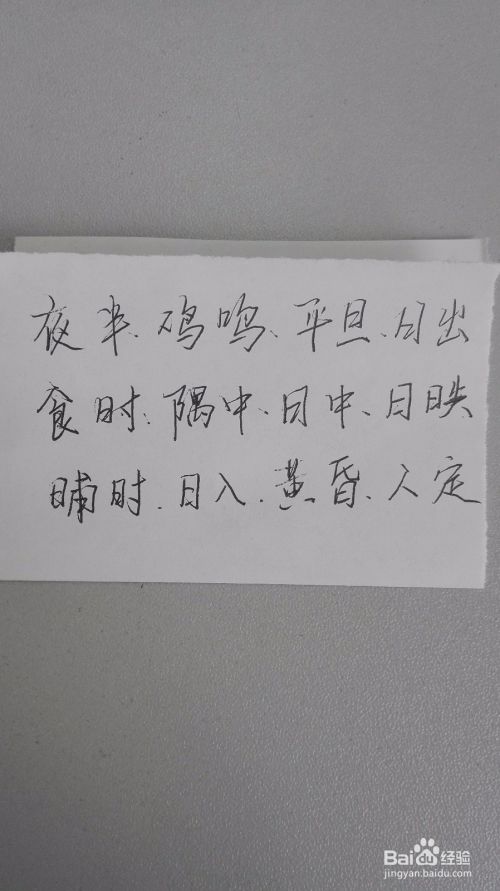 夜半、鸡鸣、平旦、日出
食时、隅中、日中、日昳
晡时、日入、黄昏、人定
Baidu经验
jingyan.baidu.com